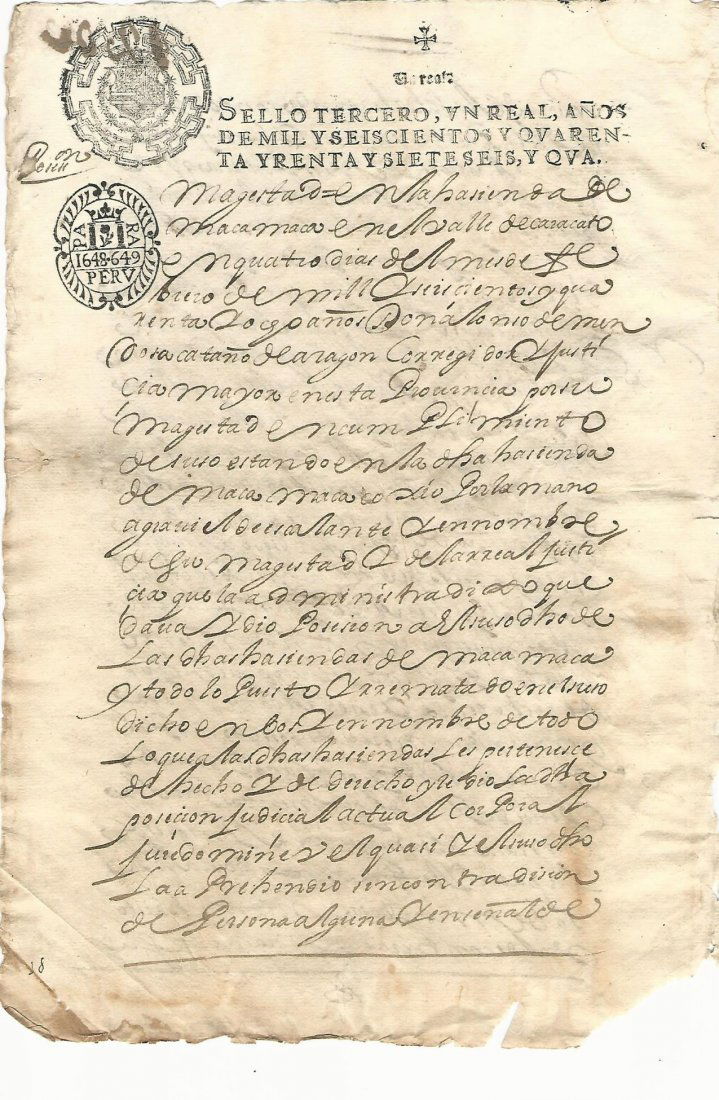 Vn real
SELLO TERCERO, VN REAL, AÑOS
DE MIL Y SEISCIENTOS Y QVAREN-
TA Y RENTA Y SIETE SEIS, Y QVA.
Posin
on
PA RA
1648-649
PERV
Magestad = en la hasienda de
macamaca en el Valle de caracato
en quatro dias del mes de fe
brero de mill Y seiscientos y qua
renta Y ocho años Don Alonso de men
dosa cataño de aragon Corregidor Y justi
cia mayor en esta Provincia por su
Magestad en cumPLimiento
de suso estando en la dha hasienda
de maca maca coxio Por la mano
a graviel de escalante Y en nombre
de Su magestad Y de la rreal justi
cia que la administra dixo que
dava Y dio Posesion al suso dho de
Las dhas hasiendas de maca maca
y todo lo Puesto Y rrematado en el suso
dicho en bos Y en nombre de todo
Lo que a las dhas hasiendas Les pertenesce
de hecho Y de derecho y le dio La dha
posecion judicial actual corPoral
jure domine vel quasi Y el suso dho
La aPrehendio sin contradision
de Persona alguna Y en señal de
38